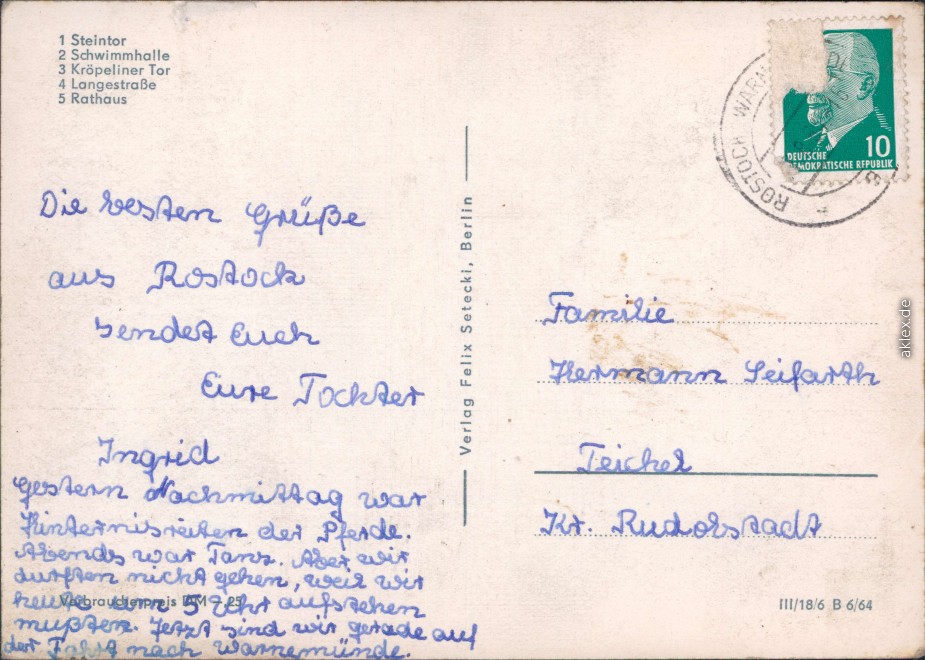 1 Steintor
2 Schwimmhalle
3 Kröpeliner Tor
4 Langestraße
5 Rathaus
Die besten Grüße
aus Rostock
sendet Euch
Eure Tochter
Ingrid
Gestern Nachmittag war
Hinternisreiten der Pferde.
Abends war Tanz. Aber wir
durften nicht gehen, weil wir
heute um 5 Uhr aufstehen
mußten. Jetzt sind wir gerade auf
der Fahrt nach Warnemünde.
Verbraucherpreis DM 0,25
Verlag Felix Setecki, Berlin
ROSTOCK
10
DEUTSCHE
DEMOKRATISCHE REPUBLIK
Familie
Hermann Seifarth
Teichel
Kr. Rudolstadt
III/18/6 B 6/64
aklex.de